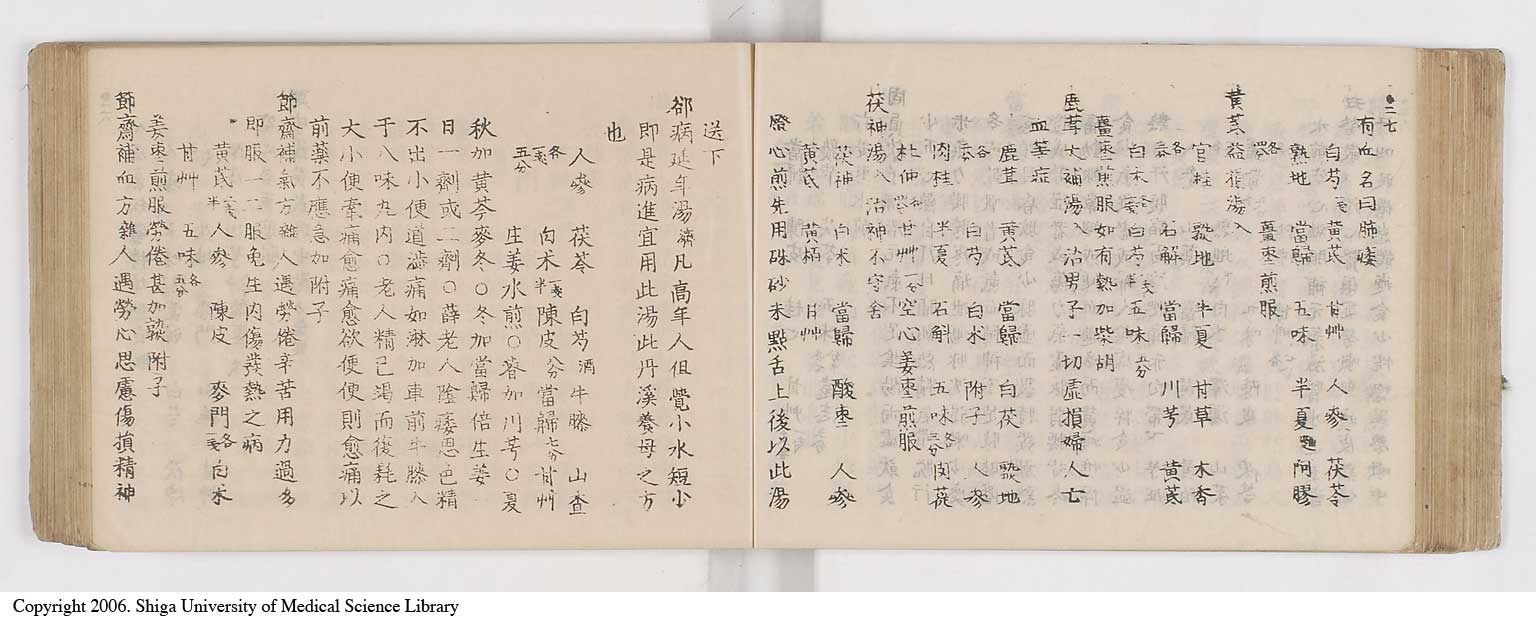 二七
有血名曰肺痿
白芍 黄芪 甘艸 人參 茯苓
熟地 當歸 五味 半夏 阿膠
各 薑枣煎服
黄芪益損湯
官桂 熟地 半夏 甘草 木香
各 石斛 當歸 川芎 黄芪
白木 白芍 五味
薑枣煎服如有熱加柴胡
鹿茸大補湯 治男子一切虚損婦人亡
血等症
鹿茸 黄芪 當歸 白茯 熟地
各 白芍 白木 附子 人參
肉桂 半夏 石斛 五味各 肉蓯
杜仲 甘艸 空心姜枣煎服
茯神湯 治神不守舍
茯神 白木 當歸 酸枣 人參
黄芪 黄栢 甘艸
燈心煎先用硃砂末點舌上後以此湯
送下
却病延年湯 凡高年人但覺小水短少
即是病進宜用此湯此丹溪養母之方
也
人參 茯苓 白芍酒 牛膝 山查
各五分 白木 陳皮八分 當歸七分 甘艸
生姜水煎〇春加川芎〇夏
秋加黄芩麥冬〇冬加當歸倍生姜
日一劑或二劑〇薛老人陰痿思色精
不出小便道澁痛如淋加車前牛膝入
于八味丸内〇老人精已竭而復耗之
大小便牽痛愈痛愈欲便便則愈痛以
前藥不應急加附子
節齋補氣方雜人遇勞倦辛苦用力過多
即服一二服免生内傷發熱之病
黄芪 人參 陳皮 麥門各 白木
甘艸 五味各五分
姜枣煎服勞倦甚加熟附子
節齋補血方雜人遇勞心思慮傷損精神
Copyright 2006. Shiga University of Medical Science Library